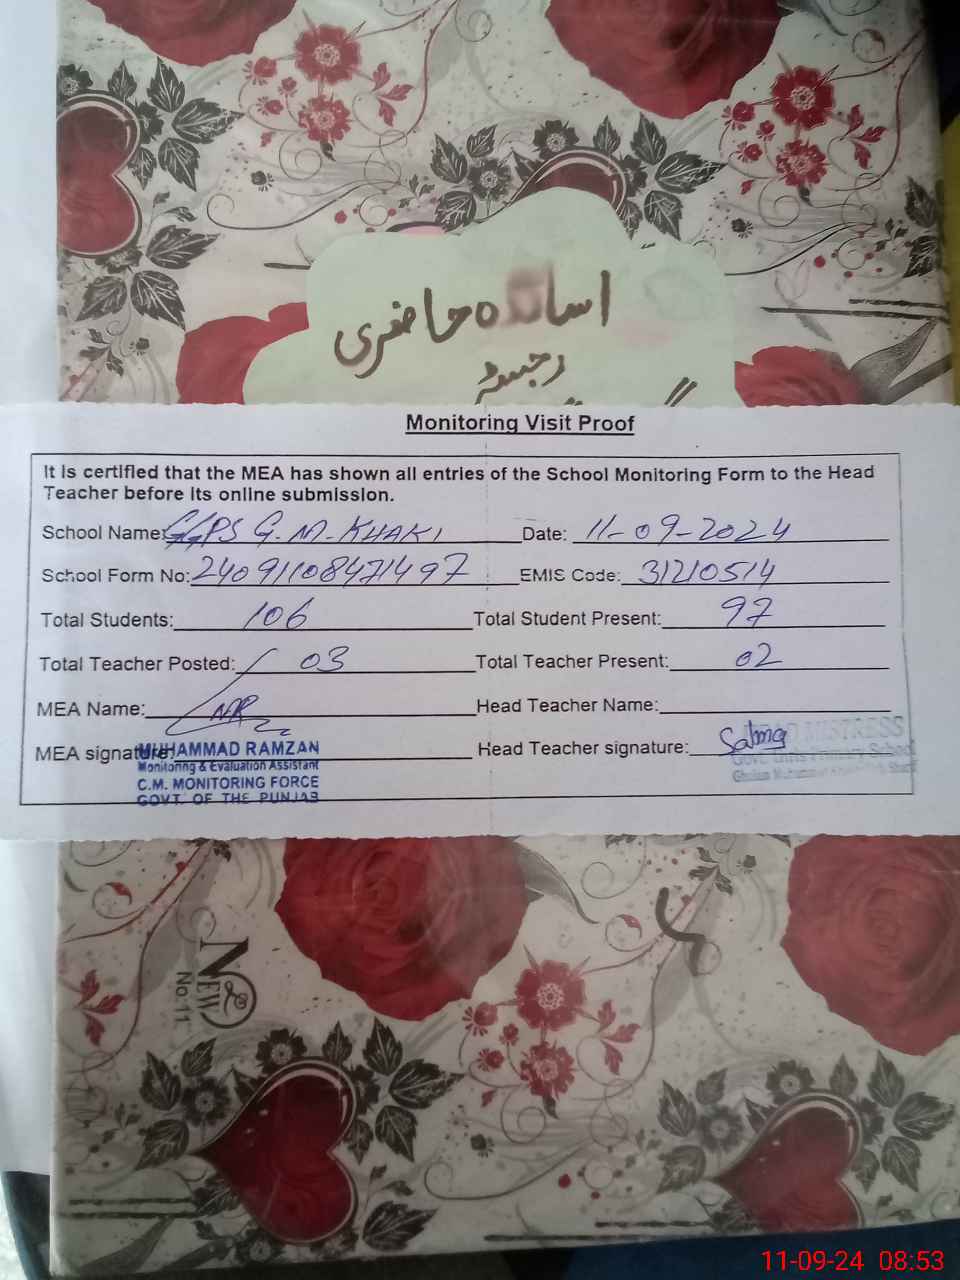 اساتذہ حاضری
رجسٹر
Monitoring Visit Proof
It is certified that the MEA has shown all entries of the School Monitoring Form to the Head
Teacher before its online submission.
School Name: GGPS G.M.KHAKI Date: 11-09-2024
School Form No: 24091108471497 EMIS Code: 31210514
Total Students: 106 Total Student Present: 97
Total Teacher Posted: 03 Total Teacher Present: 02
MEA Name: Head Teacher Name:
MEA signature: Head Teacher signature:
MUHAMMAD RAMZAN
Monitoring & Evaluation Assistant
C.M. MONITORING FORCE
GOVT. OF THE PUNJAB
HEAD MISTRESS
Govt. Girls Primary School
NEW
No.11
11-09-24 08:53